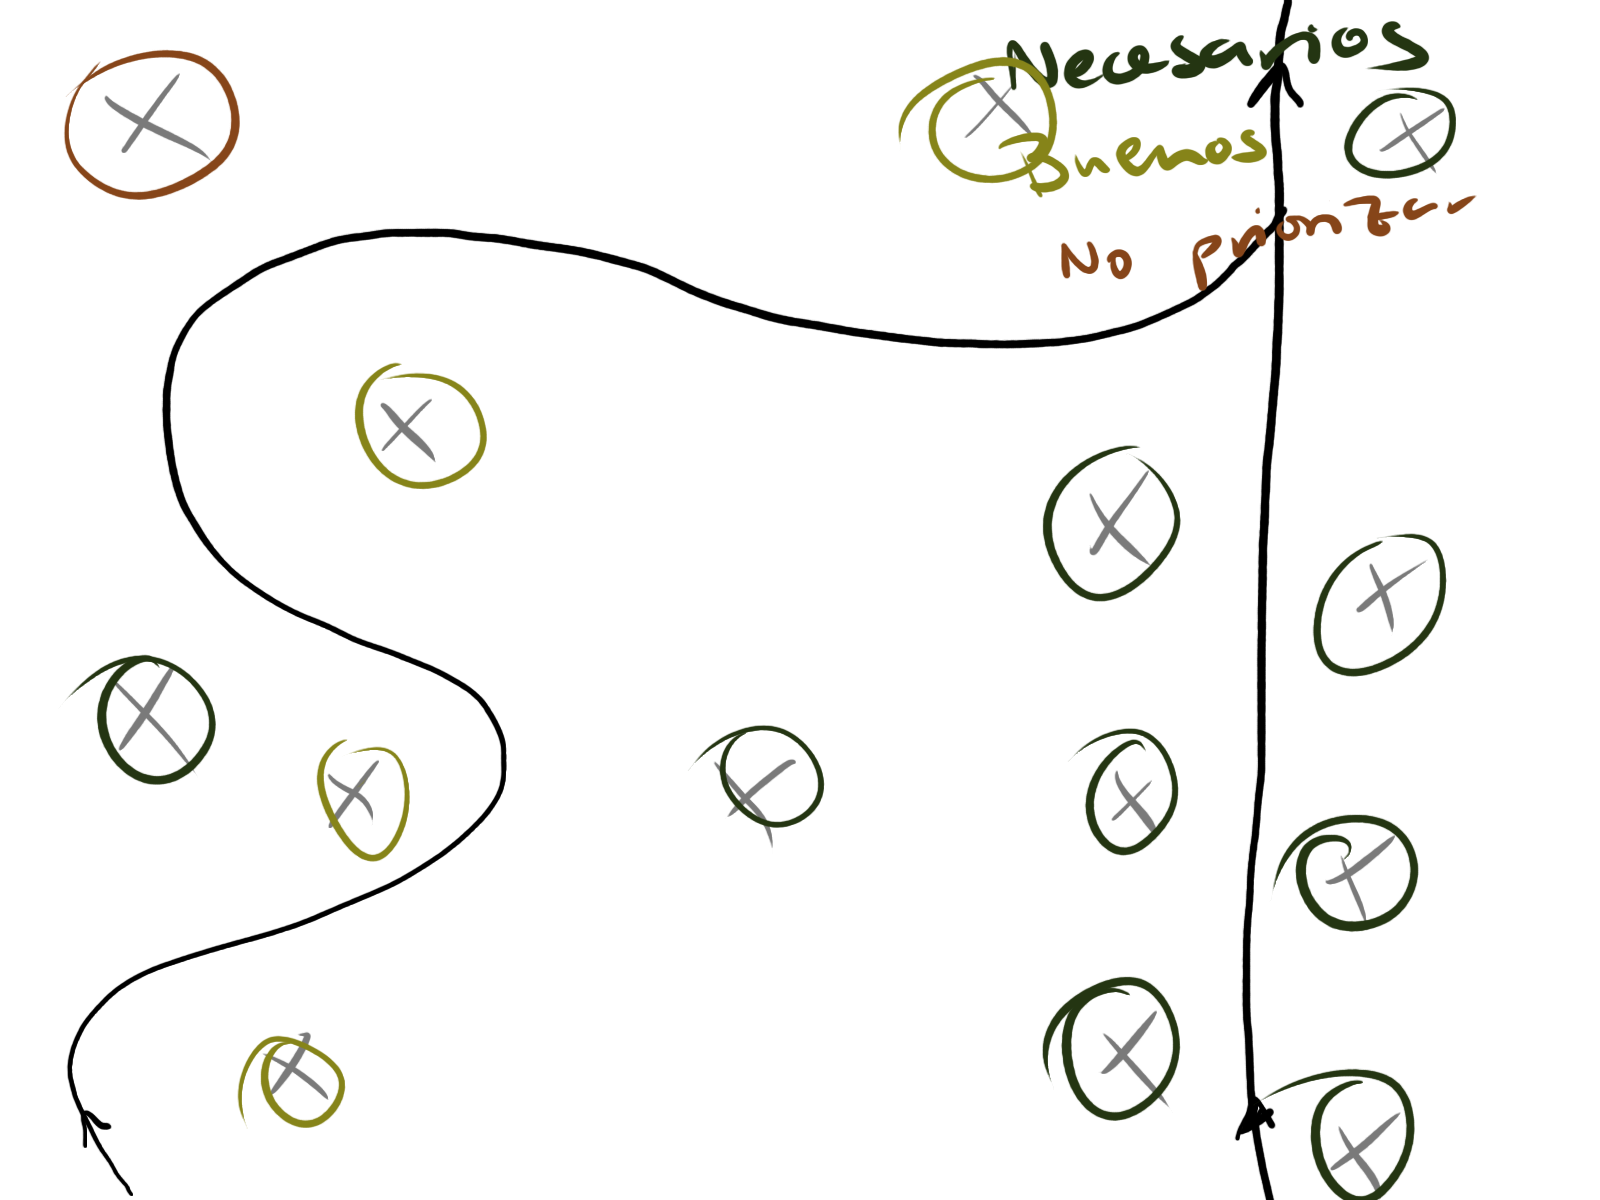 Necesarios
Buenos
No priorizar